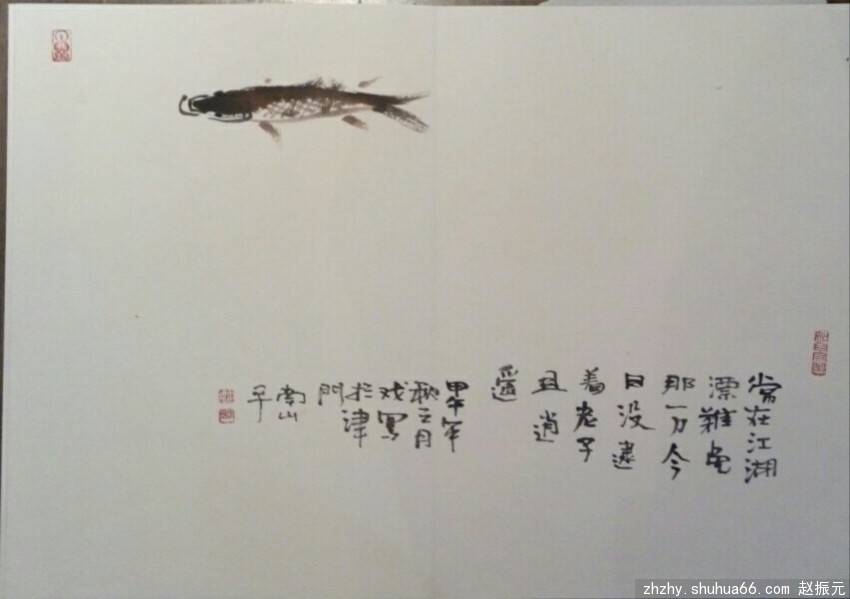 常在江湖
漂難免
那一刀今
日没逮
着老子
且逍
遥
甲午年
秋二月
戏寫
於津
門
南山
子
zhzhy.shuhua66.com 赵振元